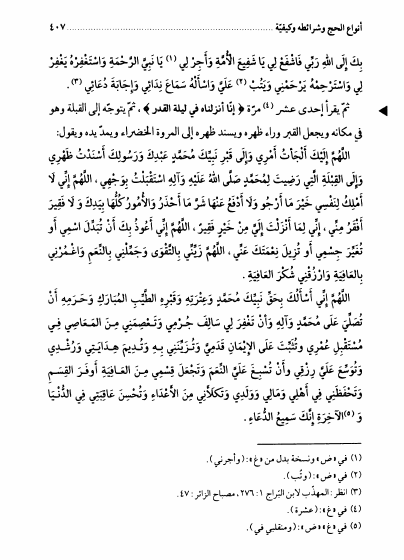 أنواع الحج وشرائطه وكيفيّة ............ ٤٠٧
بِكَ إِلَى اللهِ رَبِّي فَاشْفَعْ لِي يَا شَفِيعَ الْأُمَّةِ وَأَجِرْ لِي (١) يَا نَبِيَّ الرَّحْمَةِ وَاسْتَغْفِرْهُ يَغْفِرْ
لِي وَاسْتَرْحِمْهُ يَرْحَمْنِي وَيَتُبْ (٢) عَلَيَّ وَاسْأَلْهُ سَمَاعَ نِدَائِي وَإِجَابَةَ دُعَائِي (٣).
ثمّ يقرأ إحدى عشر (٤) مرّة ﴿ إنّا أنزلناه في ليلة القدر ﴾ ، ثمّ يتوجّه إلى القبلة وهو
في مكانه ويجعل القبر وراء ظهره ويسند ظهره إلى المروة الخضراء ويمدّ يده ويقول:
اللَّهُمَّ إِلَيْكَ أَلْجَأْتُ أَمْرِي وَإِلَى قَبْرِ نَبِيِّكَ مُحَمَّدٍ عَبْدِكَ وَرَسُولِكَ أَسْنَدْتُ ظَهْرِي
وَإِلَى الْقِبْلَةِ الَّتِي رَضِيتَ لِمُحَمَّدٍ صَلَّى اللهُ عَلَيْهِ وَآلِهِ اسْتَقْبَلْتُ بِوَجْهِي ، اللَّهُمَّ إِنِّي لَا
أَمْلِكُ لِنَفْسِي خَيْرَ مَا أَرْجُو وَلَا أَدْفَعُ عَنْهَا شَرَّ مَا أَحْذَرُ وَالْأُمُورُ كُلُّهَا بِيَدِكَ وَلَا فَقِيرَ
أَفْقَرُ مِنِّي ، إِنِّي لِمَا أَنْزَلْتَ إِلَيَّ مِنْ خَيْرٍ فَقِيرٌ ، اللَّهُمَّ إِنِّي أَعُوذُ بِكَ أَنْ تُبَدِّلَ اسْمِي أَو
تُغَيِّرَ جِسْمِي أَو تُزِيلَ نِعْمَتَكَ عَنِّي ، اللَّهُمَّ زَيِّنِّي بِالتَّقْوَى وَجَمِّلْنِي بِالنِّعَمِ وَاغْمُرْنِي
بِالْعَافِيَةِ وَارْزُقْنِي شُكْرَ الْعَافِيَةِ .
اللَّهُمَّ إِنِّي أَسْأَلُكَ بِحَقِّ نَبِيِّكَ مُحَمَّدٍ وَعِتْرَتِهِ وَقَبْرِهِ الطَّيِّبِ الْمُبَارَكِ وَحَرَمِهِ أَنْ
تُصَلِّيَ عَلَى مُحَمَّدٍ وَآلِهِ وَأَنْ تَغْفِرَ لِي سَالِفَ جُرْمِي وَتَعْصِمَنِي مِنَ الْمَعَاصِي فِي
مُسْتَقْبِلِ عُمُرِي وَتُثَبِّتَ عَلَى الْإِيْمَانِ قَدَمِيَّ وَتُزَيِّنَنِي بِهِ وَتُدِيمَ هِدَايَتِي وَرُشْدِي
وَتُوَسِّعَ عَلَيَّ رِزْقِي وَأَنْ تُسْبِغَ عَلَيَّ النِّعَمَ وَتَجْعَلَ قِسْمِي مِنَ الْعَافِيَةِ أَوفَرَ الْقِسَمِ
وَتَحْفَظَنِي فِي أَهْلِي وَمَالِي وَوَلَدِي وَتَكْلَأَنِي مِنَ الْأَعْدَاءِ وَتُحْسِنَ عَاقِبَتِي فِي الدُّنْيَا
وَ (٥) الْآخِرَةِ إِنَّكَ سَمِيعُ الدُّعَاءِ .
(١) في «ض» ونسخة بدل من «غ»: (وأجرني).
(٢) في «ض»: (وتُب).
(٣) انظر: المهذّب لابن البرّاج ١ : ٢٧٦، مصباح الزائر: ٤٧.
(٤) في «غ»: (عشرة).
(٥) في «غ» «ض»: (ومنقلبي في).